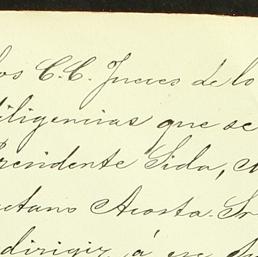 los C.C. Jueces de lo
diligencias que se
Presidente Lida,
etano Acosta. Sr
dirigir á ese